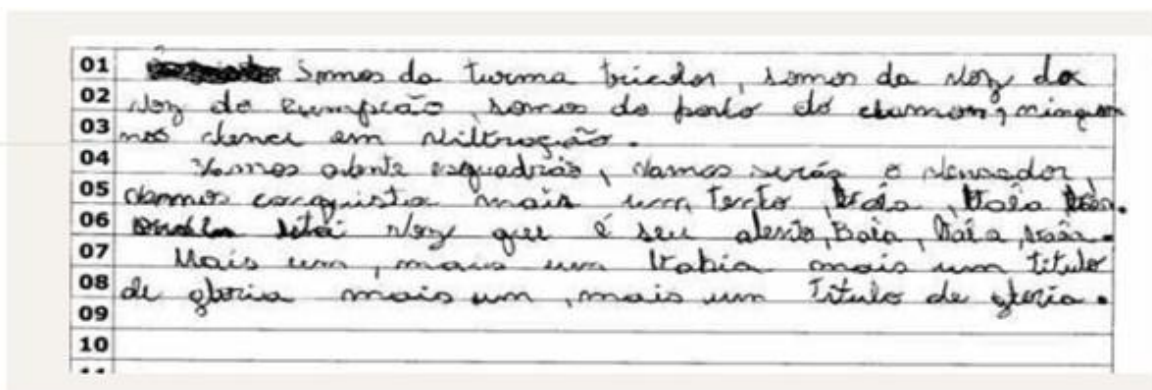 01 Somos da turma tricolor, somos da voz do
02 voz do campeão, somos do porto do clamon, ninguen
03 nos vence em viltração.
04 Vamos avente esquadrão, vamos serás o vensedor,
05 vamos conquista mais um tento, Baia, Baia
06 está voz que é seu alento, Baia, Baia, Baia.
07 Mais um, mais um Bahia mais um titulo
08 de gloria mais um, mais um titulo de gloria.
09
10